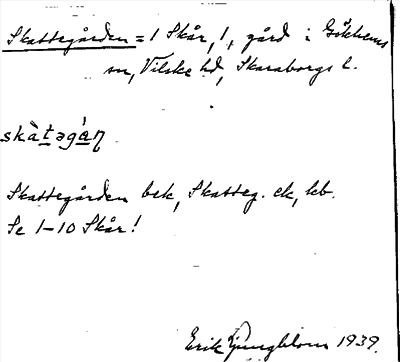 Skattegården = 1 Skår, 1, gård i Gökhems
sn, Vilske hd, Skaraborgs l.
skàtəgán
Skattegården bek, Skatteg. ek, kb.
Se 1-10 Skår!
Erik Ljungblom 1939.